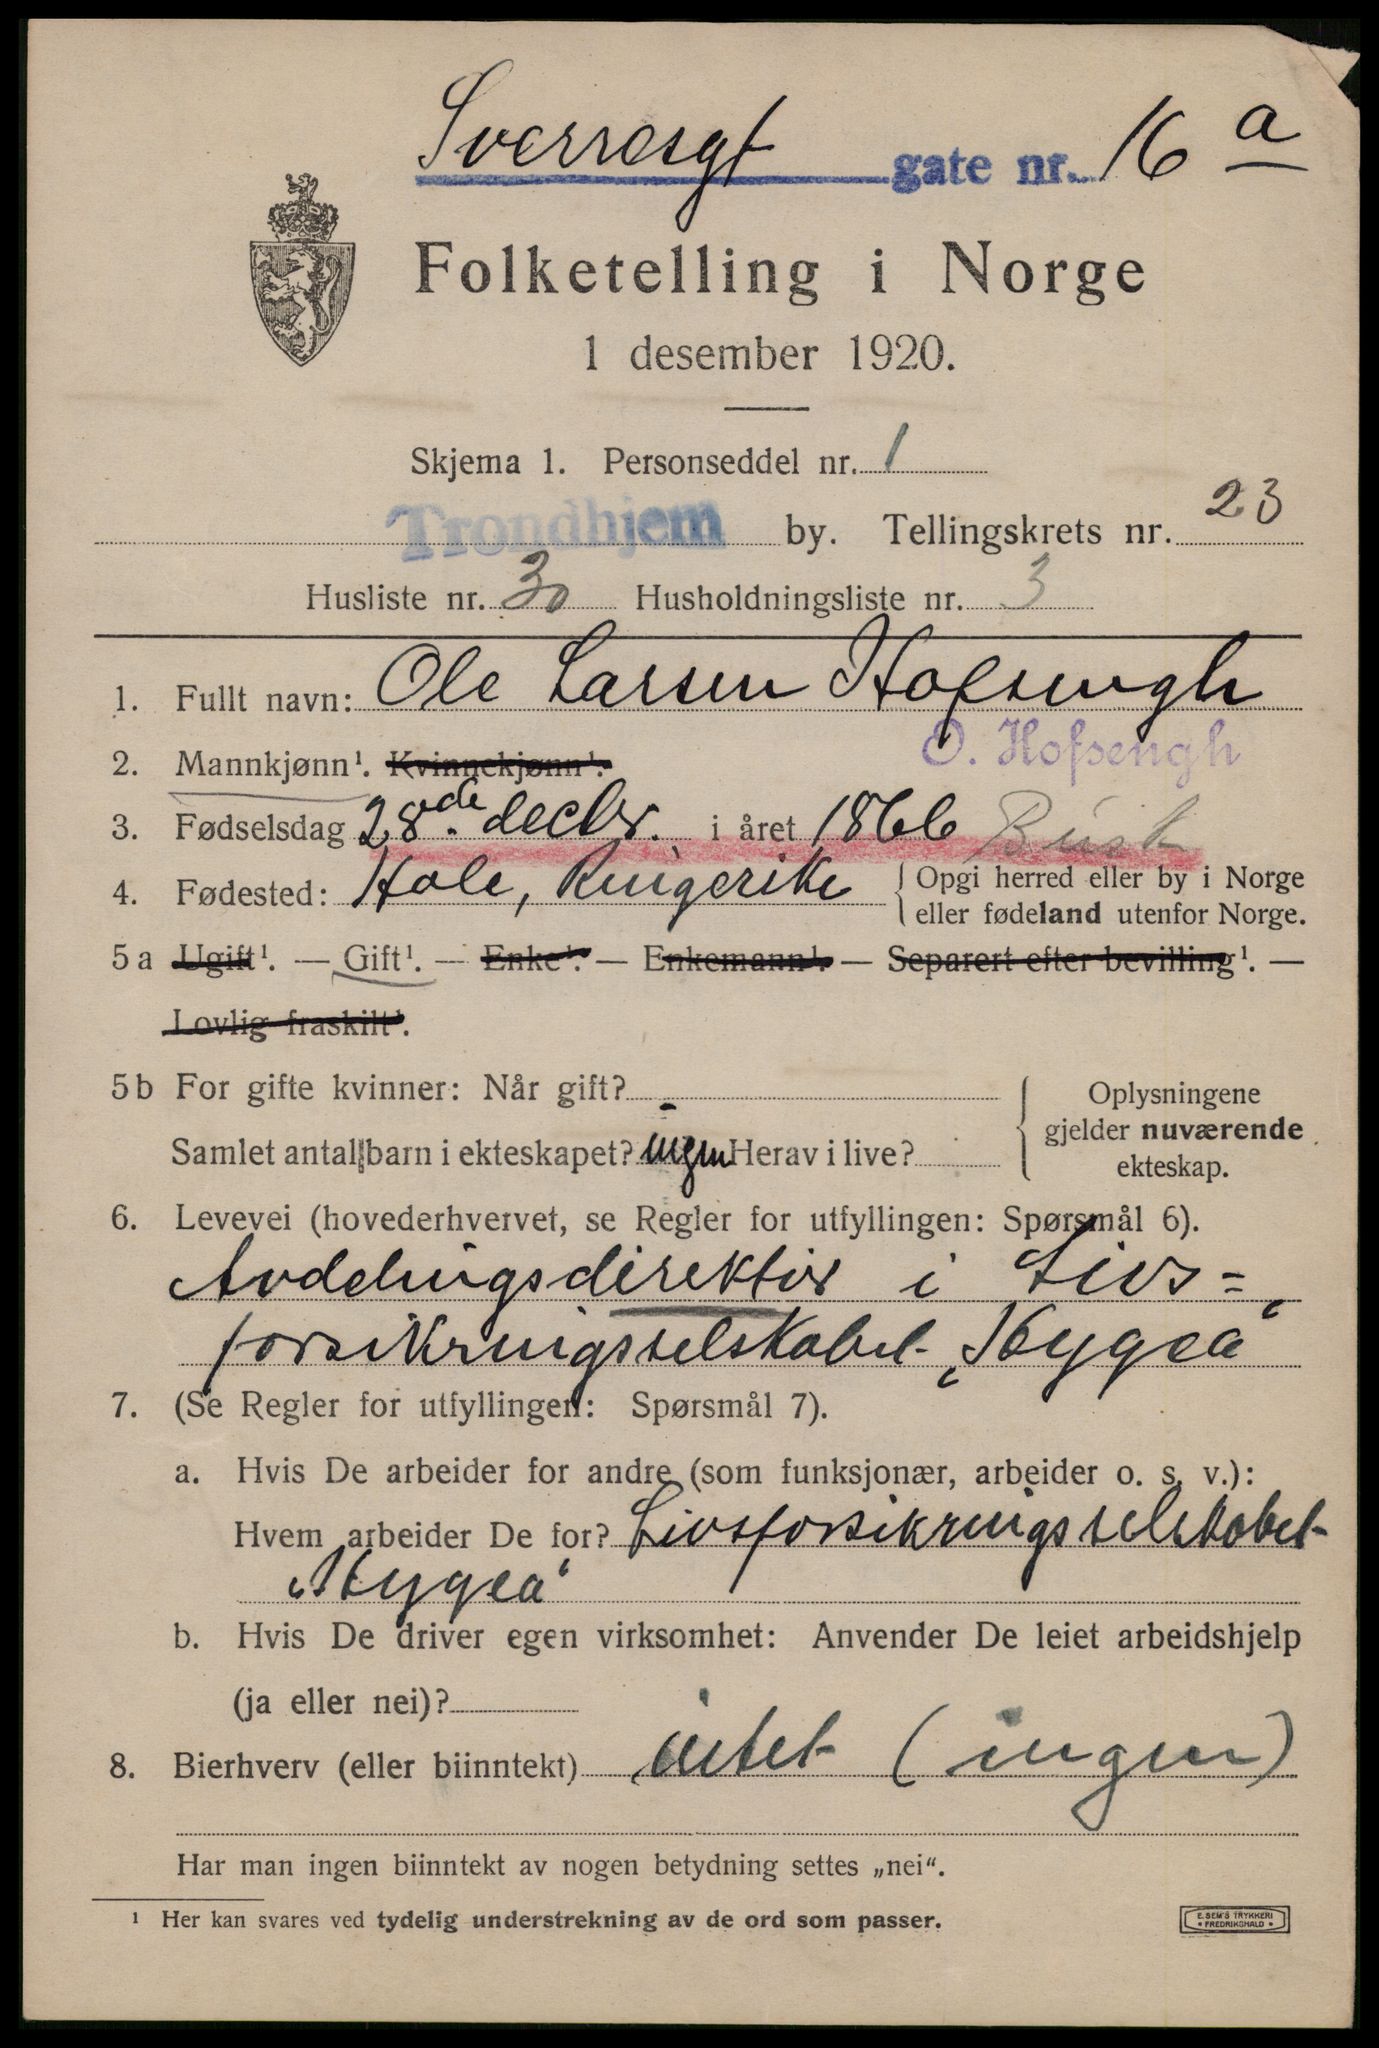 Sverresgt gate nr. 16 a
Folketelling i Norge
1 desember 1920.
Skjema 1. Personseddel nr. 1
Trondhjem by. Tellingskrets nr. 23
Husliste nr. 30 Husholdningsliste nr. 3
1. Fullt navn: Ole Larsen Hofsengh
O. Hofsengh
2. Mannkjønn¹. Kvinnekjønn¹.
3. Fødselsdag 28de decbr. i året 1866 Busk
4. Fødested: Hole, Ringerike { Opgi herred eller by i Norge
eller fødeland utenfor Norge.
5 a Ugift¹. — Gift¹. — Enke¹. — Enkemann¹. — Separert efter bevilling¹. —
Lovlig fraskilt¹.
5 b For gifte kvinner: Når gift?
Samlet antal barn i ekteskapet? ingen Herav i live?
Oplysningene
gjelder nuværende
ekteskap.
6. Levevei (hovederhvervet, se Regler for utfyllingen: Spørsmål 6).
Avdelingsdirektør i Livs=
forsikringsselskabet „Hygea“
7. (Se Regler for utfyllingen: Spørsmål 7).
a. Hvis De arbeider for andre (som funksjonær, arbeider o. s. v.):
Hvem arbeider De for? Livsforsikringsselskabet
„Hygea“
b. Hvis De driver egen virksomhet: Anvender De leiet arbeidshjelp
(ja eller nei)?
8. Bierhverv (eller biinntekt) intet (ingen)
Har man ingen biinntekt av nogen betydning settes „nei“.
¹ Her kan svares ved tydelig understrekning av de ord som passer.
E. SEM'S TRYKKERI
FREDRIKSHALD